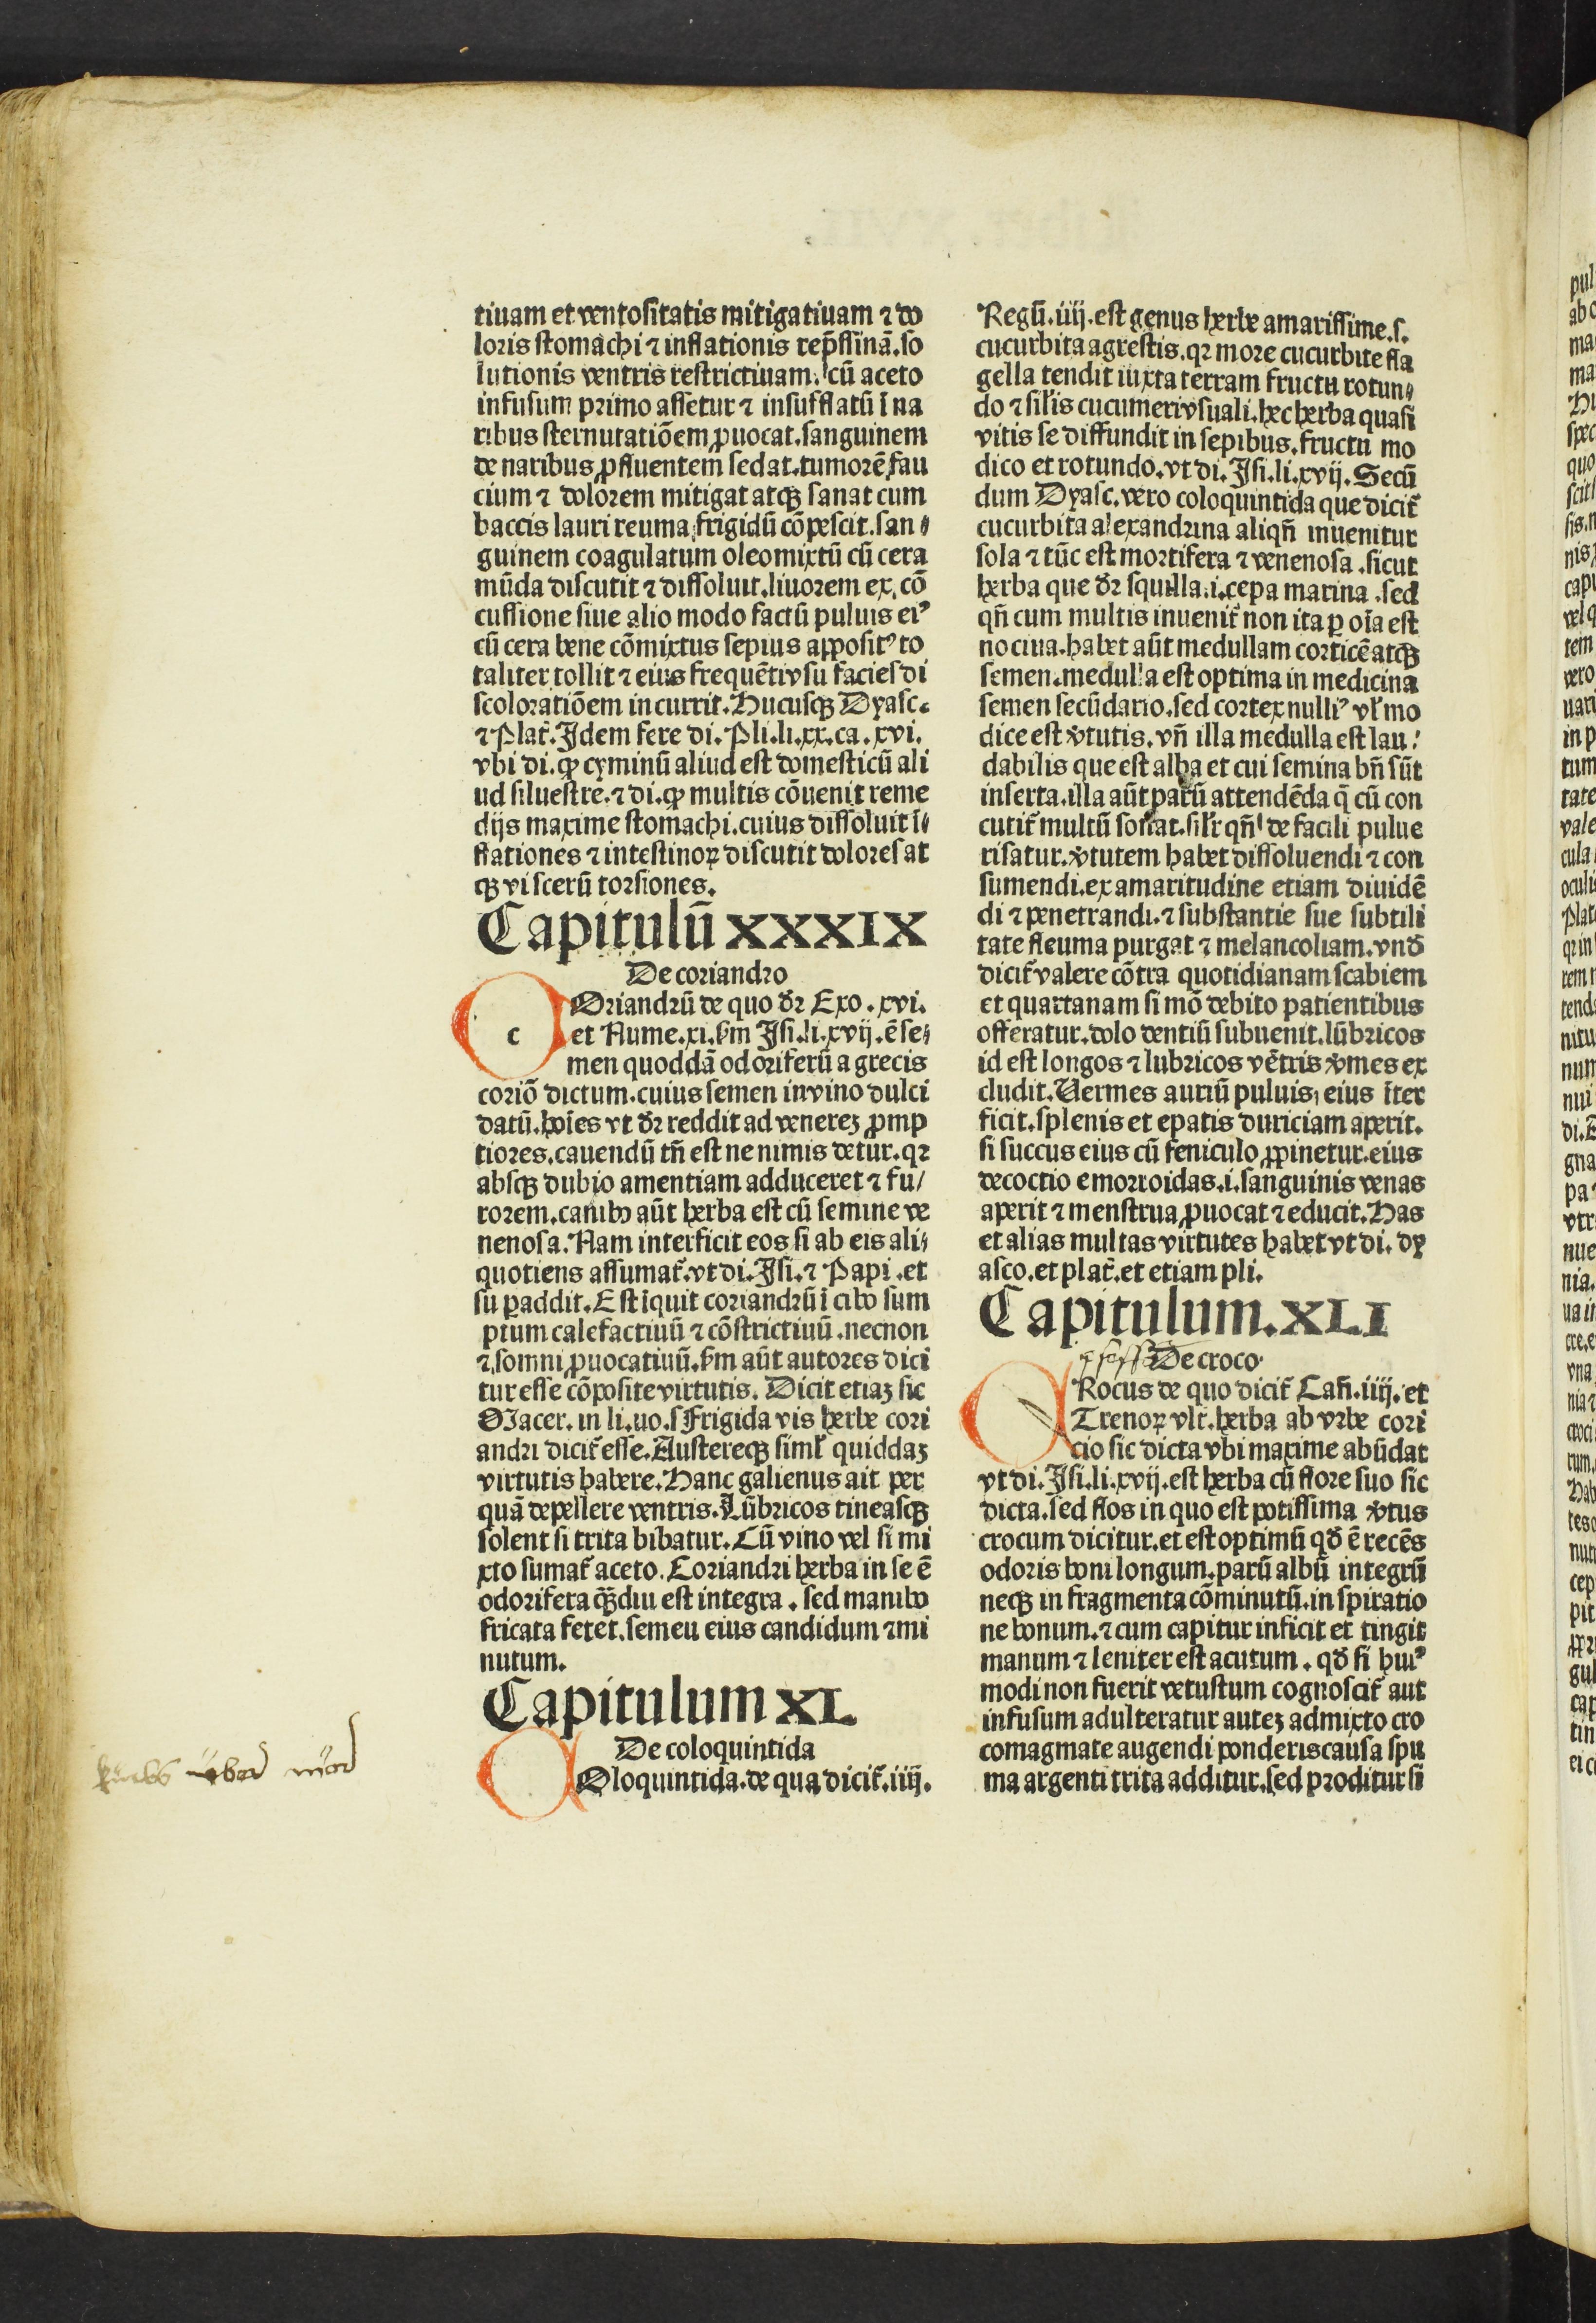 tiuam et ventositatis mitigatiuam ⁊ do
loris stomachi ⁊ inflationis rep̄ssinā. so
lutionis ventris restrictiuam. cū aceto
infusum primo assetur ⁊ insufflatū ī na
ribus sternutatiōem ꝓuocat. sanguinem
de naribus ꝓfluentem sedat. tumorē fau
cium ⁊ dolorem mitigat atqꝫ sanat cum
baccis lauri reuma frigidū cōpescit. san⸗
guinem coagulatum oleo mixtū cū cera
mūda discutit ⁊ dissoluit. liuorem ex cō
cussione siue alio modo factū puluis eiꝰ
cū cera bene cōmixtus sepius apposit⁹ to
taliter tollit ⁊ eius frequēti vsu facies di
scoloratiōem incurrit. Hucusqꝫ Dyasc.
⁊ Plat̄. Idem fere di. Pli. li. xx. ca. xvi.
vbi di. ꝙ cyminū aliud est domesticū ali
ud siluestre. ⁊ di. ꝙ multis cōuenit reme
dijs maxime stomachi. cuius dissoluit ī⸗
flationes ⁊ intestinoꝝ discutit dolores at
qꝫ viscerū torsiones.
Capitulū XXXIX
De coriandro
c
Oriandrū de quo dr̄ Exo. xvi.
et Nume. xi. ẜm Isi. li. xvij. ē se⸗
men quoddā odoriferū a grecis
coriō dictum. cuius semen in vino dulci
datū. hoīes vt dr̄ reddit ad venereꝫ ꝓmp
tiores. cauendū tn̄ est ne nimis detur. qꝛ
absqꝫ dubio amentiam adduceret ⁊ fu/
rorem. canibꝰ aūt herba est cū semine ve
nenosa. Nam interficit eos si ab eis ali⸗
quotiens assumat̄. vt di. Isi. ⁊ Papi. et
su ꝑaddit. Est īquit coriandrū ī cibo sum
ptum calefactiuū ⁊ cōstrictiuū. necnon
⁊ somni ꝓuocatiuū. ẜm aūt autores dici
tur esse cōposite virtutis. Dicit etiaꝫ sic
Macer. in li. uo. s Frigida vis herbe cori
andri dicit̄ esse. Austereqꝫ simꝉ quiddaꝫ
virtutis habere. Hanc galienus ait per
quā depellere ventris. Lūbricos tineasqꝫ
solent si trita bibatur. Cū vino vel si mi
xto sumat̄ aceto. Coriandri herba in se ē
odorifera qꝫdiu est integra. sed manibꝰ
fricata fetet. semeu eius candidum ⁊ mi
nutum.
Capitulum XL
De coloquintida
Oloquintida. de qua dicit̄. iiij.
Regū. iiij. est genus herbe amarissime. s.
cucurbita agrestis. qꝛ more cucurbite fla
gella tendit iuxta terram fructu rotun⸗
do ⁊ silis cucumeri vsuali. hec herba quasi
vitis se diffundit in sepibus. fructu mo
dico et rotundo. vt di. Isi. li. xvij. Secū
dum Dyasc. vero coloquintida que dicit̄
cucurbita alexandrina aliqn̄ inuenitur
sola ⁊ tūc est mortifera ⁊ venenosa. sicut
herba que dr̄ squilla. i. cepa marina. sed
qn̄ cum multis inuenit̄ non ita ꝑ oīa est
nociua. habet aūt medullam corticē atqꝫ
semen. medulla est optima in medicina
semen secūdario. sed cortex nulliꝰ vꝉ mo
dice est v̄tutis. vn̄ illa medulla est lau⸗
dabilis que est alba et cui semina bn̄ sūt
inserta. illa aūt parū attendēda q̄ cū con
cutit̄ multū sonat. silꝛ qn̄ de facili pulue
risatur. v̄tutem habet dissoluendi ⁊ con
sumendi. ex amaritudine etiam diuidē
di ⁊ penetrandi. ⁊ substantie sue subtili
tate fleuma purgat ⁊ melancoliam. vnd̄
dicit̄ valere cōtra quotidianam scabiem
et quartanam si mō debito patientibus
offeratur. dolo dentiū subuenit. lūbricos
id est longos ⁊ lubricos vētris v̄mes ex
cludit. Vermes auriū puluis eius īter
ficit. splenis et epatis duriciam aperit.
si succus eius cū feniculo ꝓpinetur. eius
decoctio emorroidas. i. sanguinis venas
aperit ⁊ menstrua ꝓuocat ⁊ educit. Has
et alias multas virtutes habet vt di. dy
asco. et plat̄. et etiam pli.
Capitulum. XLI
De croco
Rocus de quo dicit̄ Can̄. iiij. et
Trenoꝝ vlt. herba ab vrbe cori
cio sic dicta vbi maxime abūdat
vt di. Isi. li. xvij. est herba cū flore suo sic
dicta. sed flos in quo est potissima v̄tus
crocum dicitur. et est optimū qd̄ ē recēs
odoris boni longum. parū albū integrū
neqꝫ in fragmenta cōminutū. in spiratio
ne bonum. ⁊ cum capitur inficit et tingit
manum ⁊ leniter est acutum. qd̄ si huiꝰ
modi non fuerit vetustum cognoscit̄ aut
infusum adulteratur auteꝫ admixto cro
comagmate augendi ponderis causa spu
ma argenti trita additur. sed proditur si